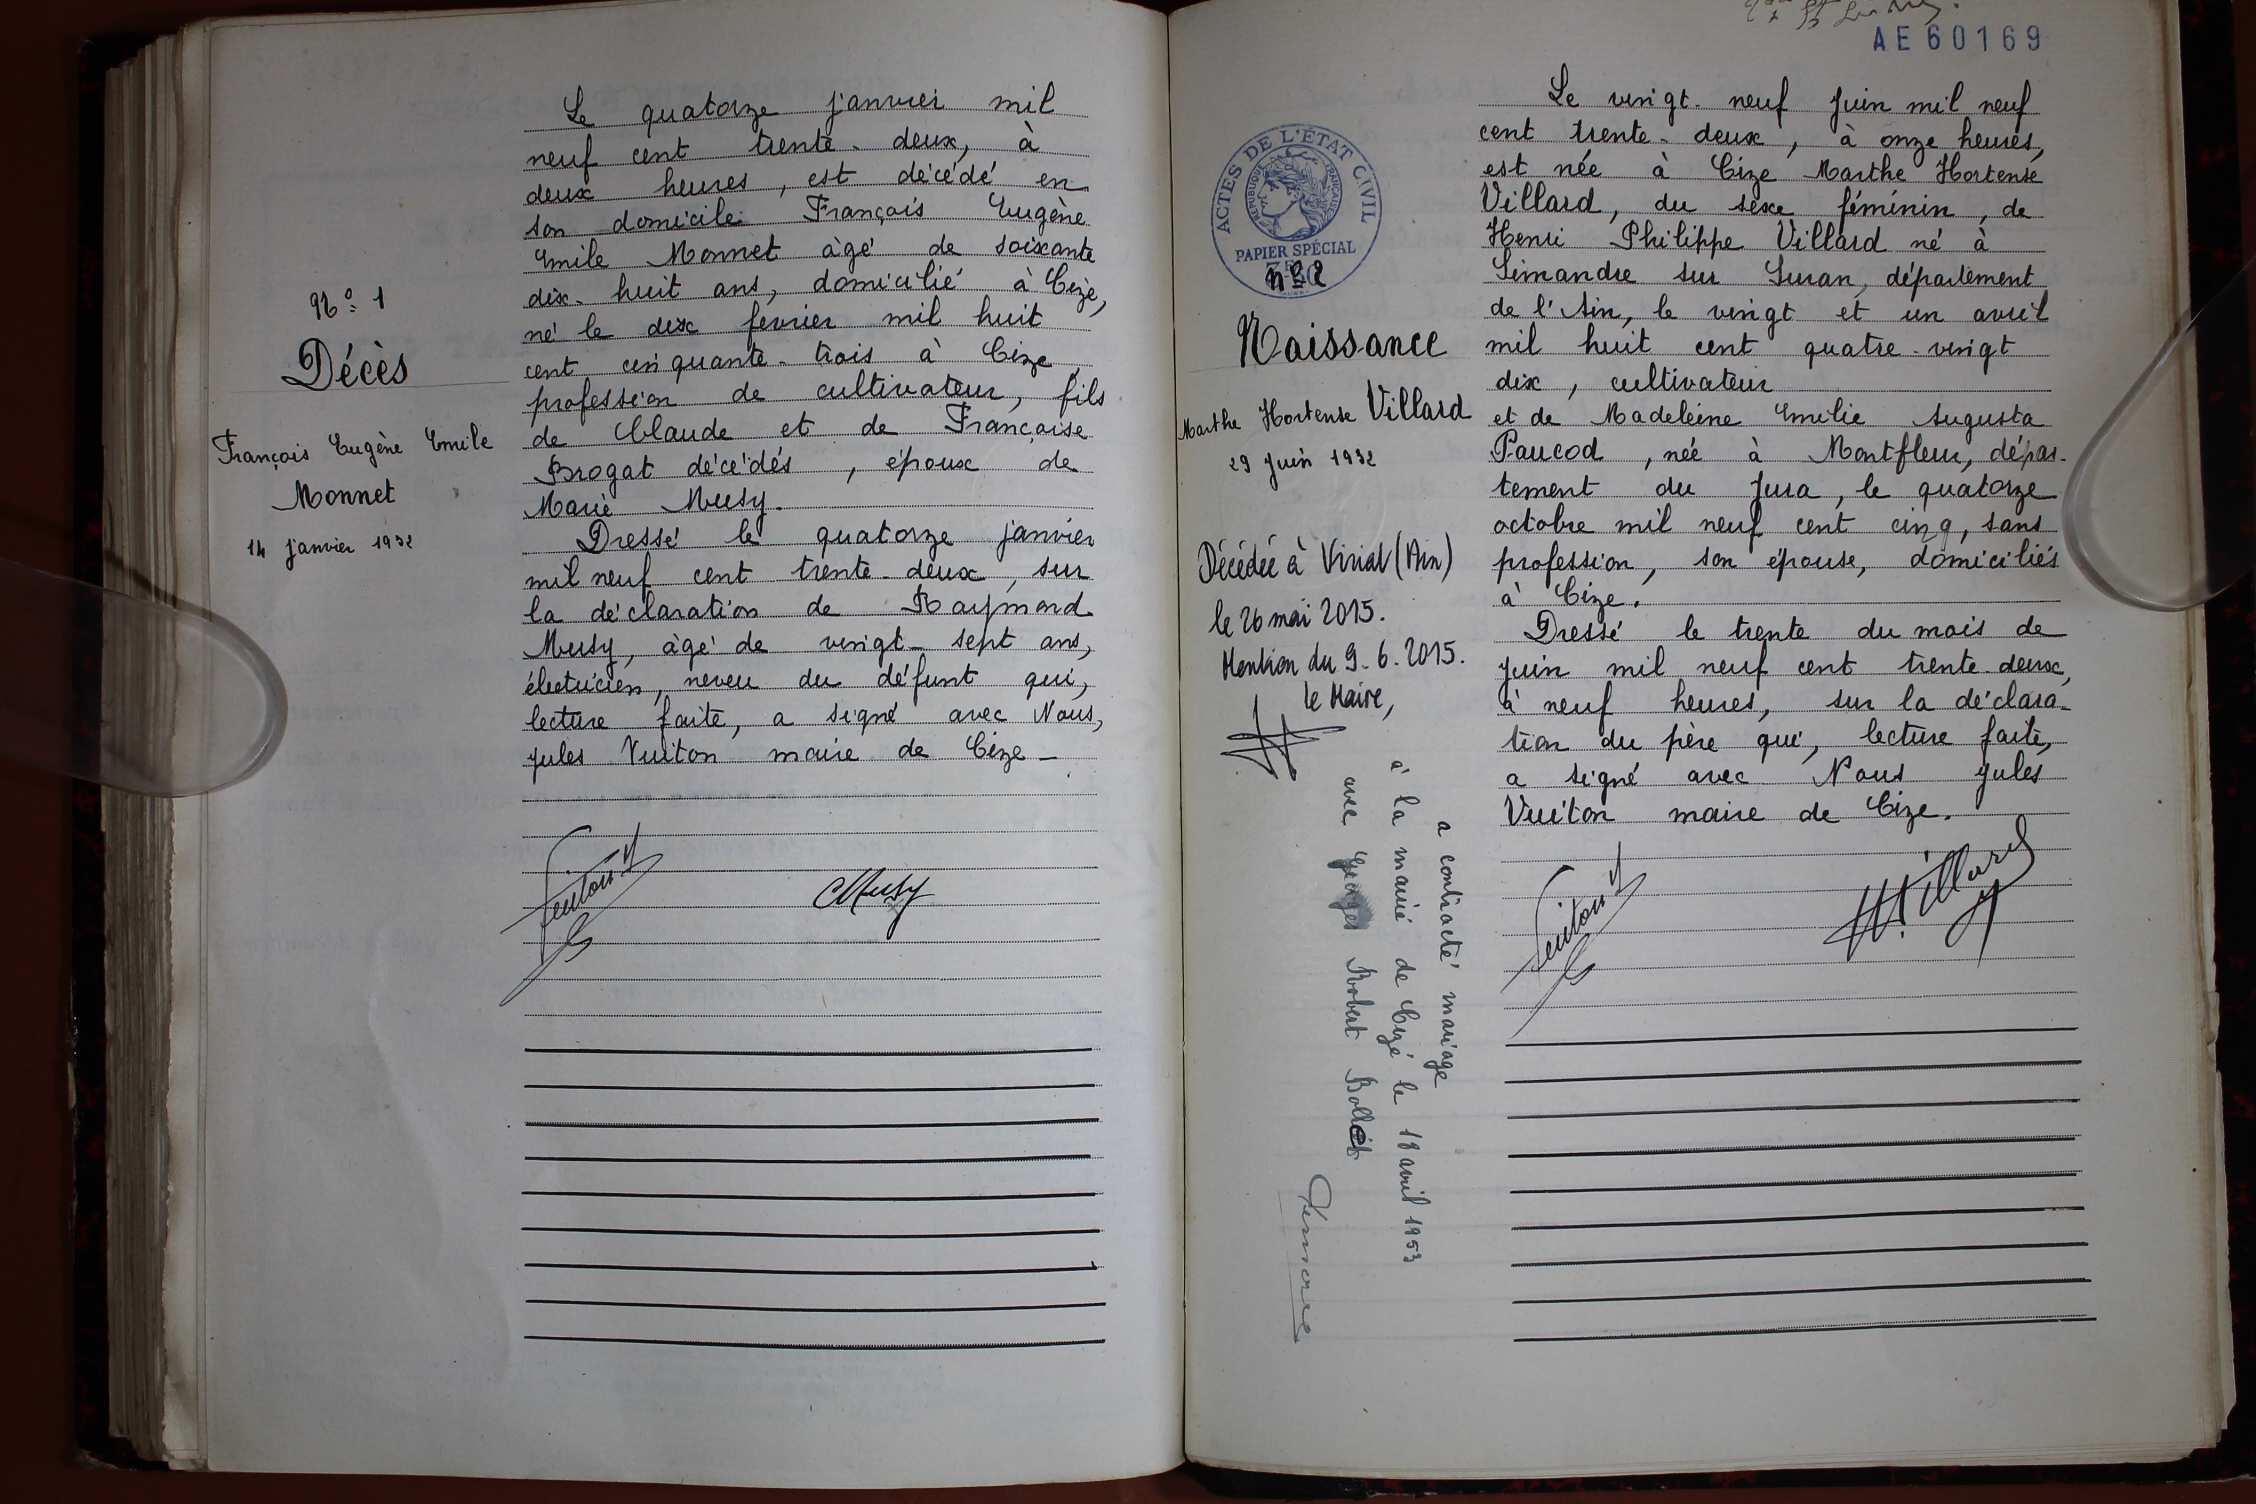 N° 1
Décès
François Eugène Emile
Monnet
14 janvier 1932
Le quatorze janvier mil
neuf cent trente-deux, à
deux heures, est décédé en
son domicile François Eugène
Emile Monnet âgé de soixante
dix-huit ans, domicilié à Cize,
né le dix février mil huit
cent cinquante-trois à Cize,
profession de cultivateur, fils
de Claude et de Françoise
Brogat décédés, époux de
Marie Musy.
Dressé le quatorze janvier
mil neuf cent trente-deux, sur
la déclaration de Raymond
Musy, âgé de vingt-sept ans,
électricien, neveu du défunt qui,
lecture faite, a signé avec Nous,
Jules Vuiton maire de Cize_
Vuiton J
Musy
AE60169
ACTES DE L'ÉTAT CIVIL
RÉPUBLIQUE FRANÇAISE
PAPIER SPÉCIAL
n° 2
Naissance
Marthe Hortense Villard
29 Juin 1932
Décédée à Viriat (Ain)
le 26 mai 2015.
Mention du 9.6.2015.
le Maire,
a contracté mariage
à la mairie de Cize le 18 avril 1953
avec Georges Robert Bollet
Le vingt-neuf Juin mil neuf
cent trente-deux, à onze heures,
est née à Cize Marthe Hortense
Villard, du sexe féminin, de
Henri Philippe Villard né à
Simandre sur Suran, département
de l'Ain, le vingt et un avril
mil huit cent quatre-vingt
dix, cultivateur
et de Madeleine Emilie Augusta
Paucod, née à Montfleur, dépar-
tement du Jura, le quatorze
octobre mil neuf cent cinq, sans
profession, son épouse, domiciliés
à Cize.
Dressé le trente du mois de
Juin mil neuf cent trente-deux,
à neuf heures, sur la déclara-
tion du père qui, lecture faite,
a signé avec Nous Jules
Vuiton maire de Cize.
Vuiton J
H Villard